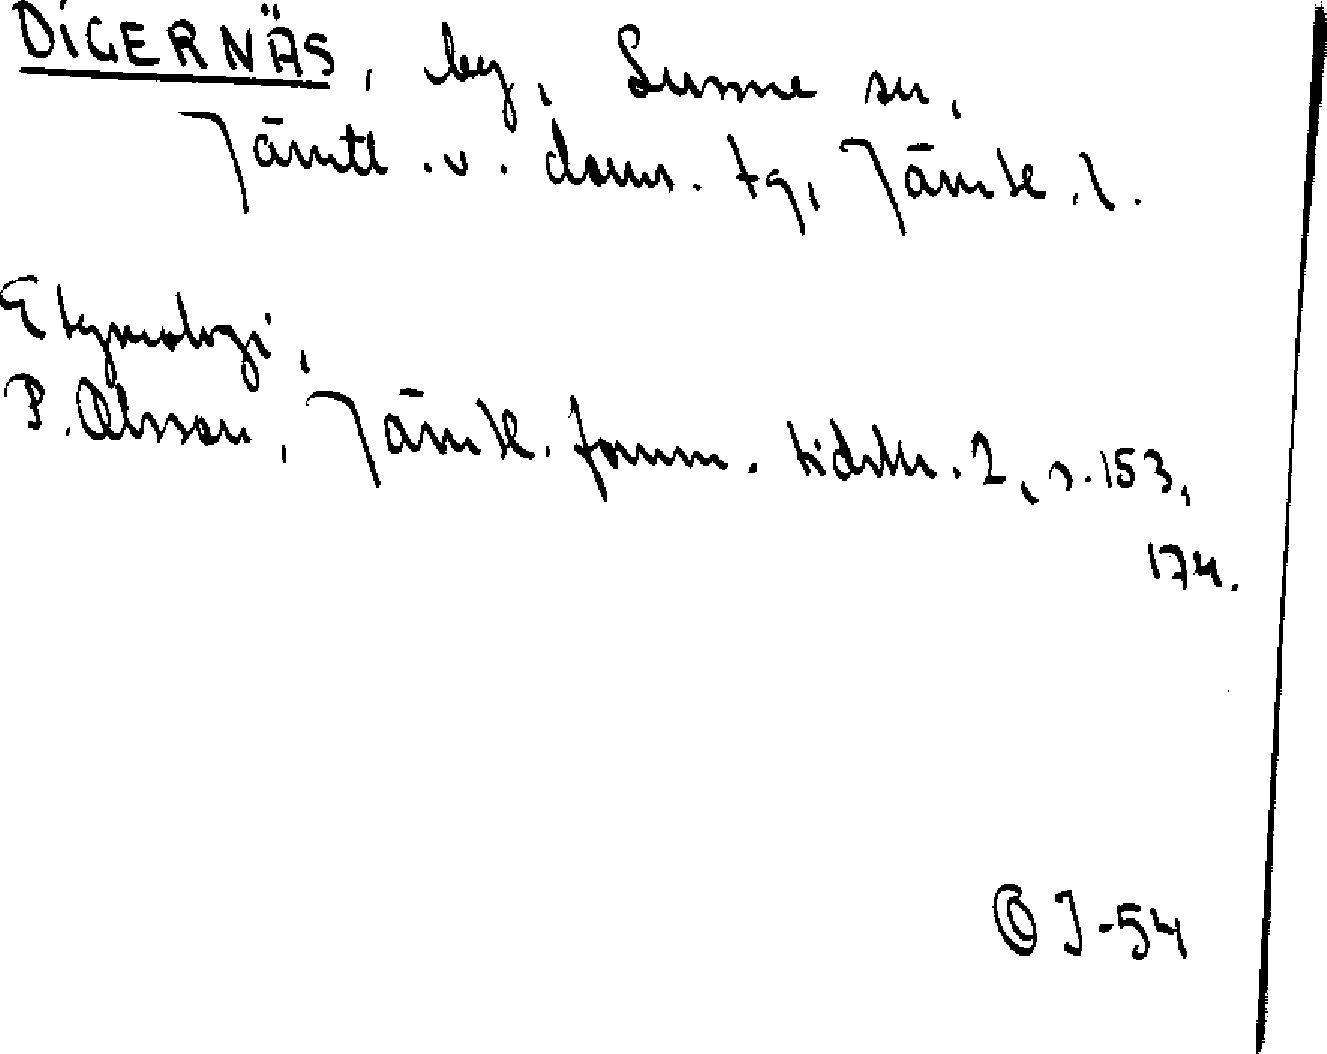 DIGERNÄS, by, Sunne sn,
Jämtl. v. doms. tg, Jämtl. l.
Etymologi,
P. Olsson, Jämtl. fornm. tidskr. 2, s. 153,
174.
J-54